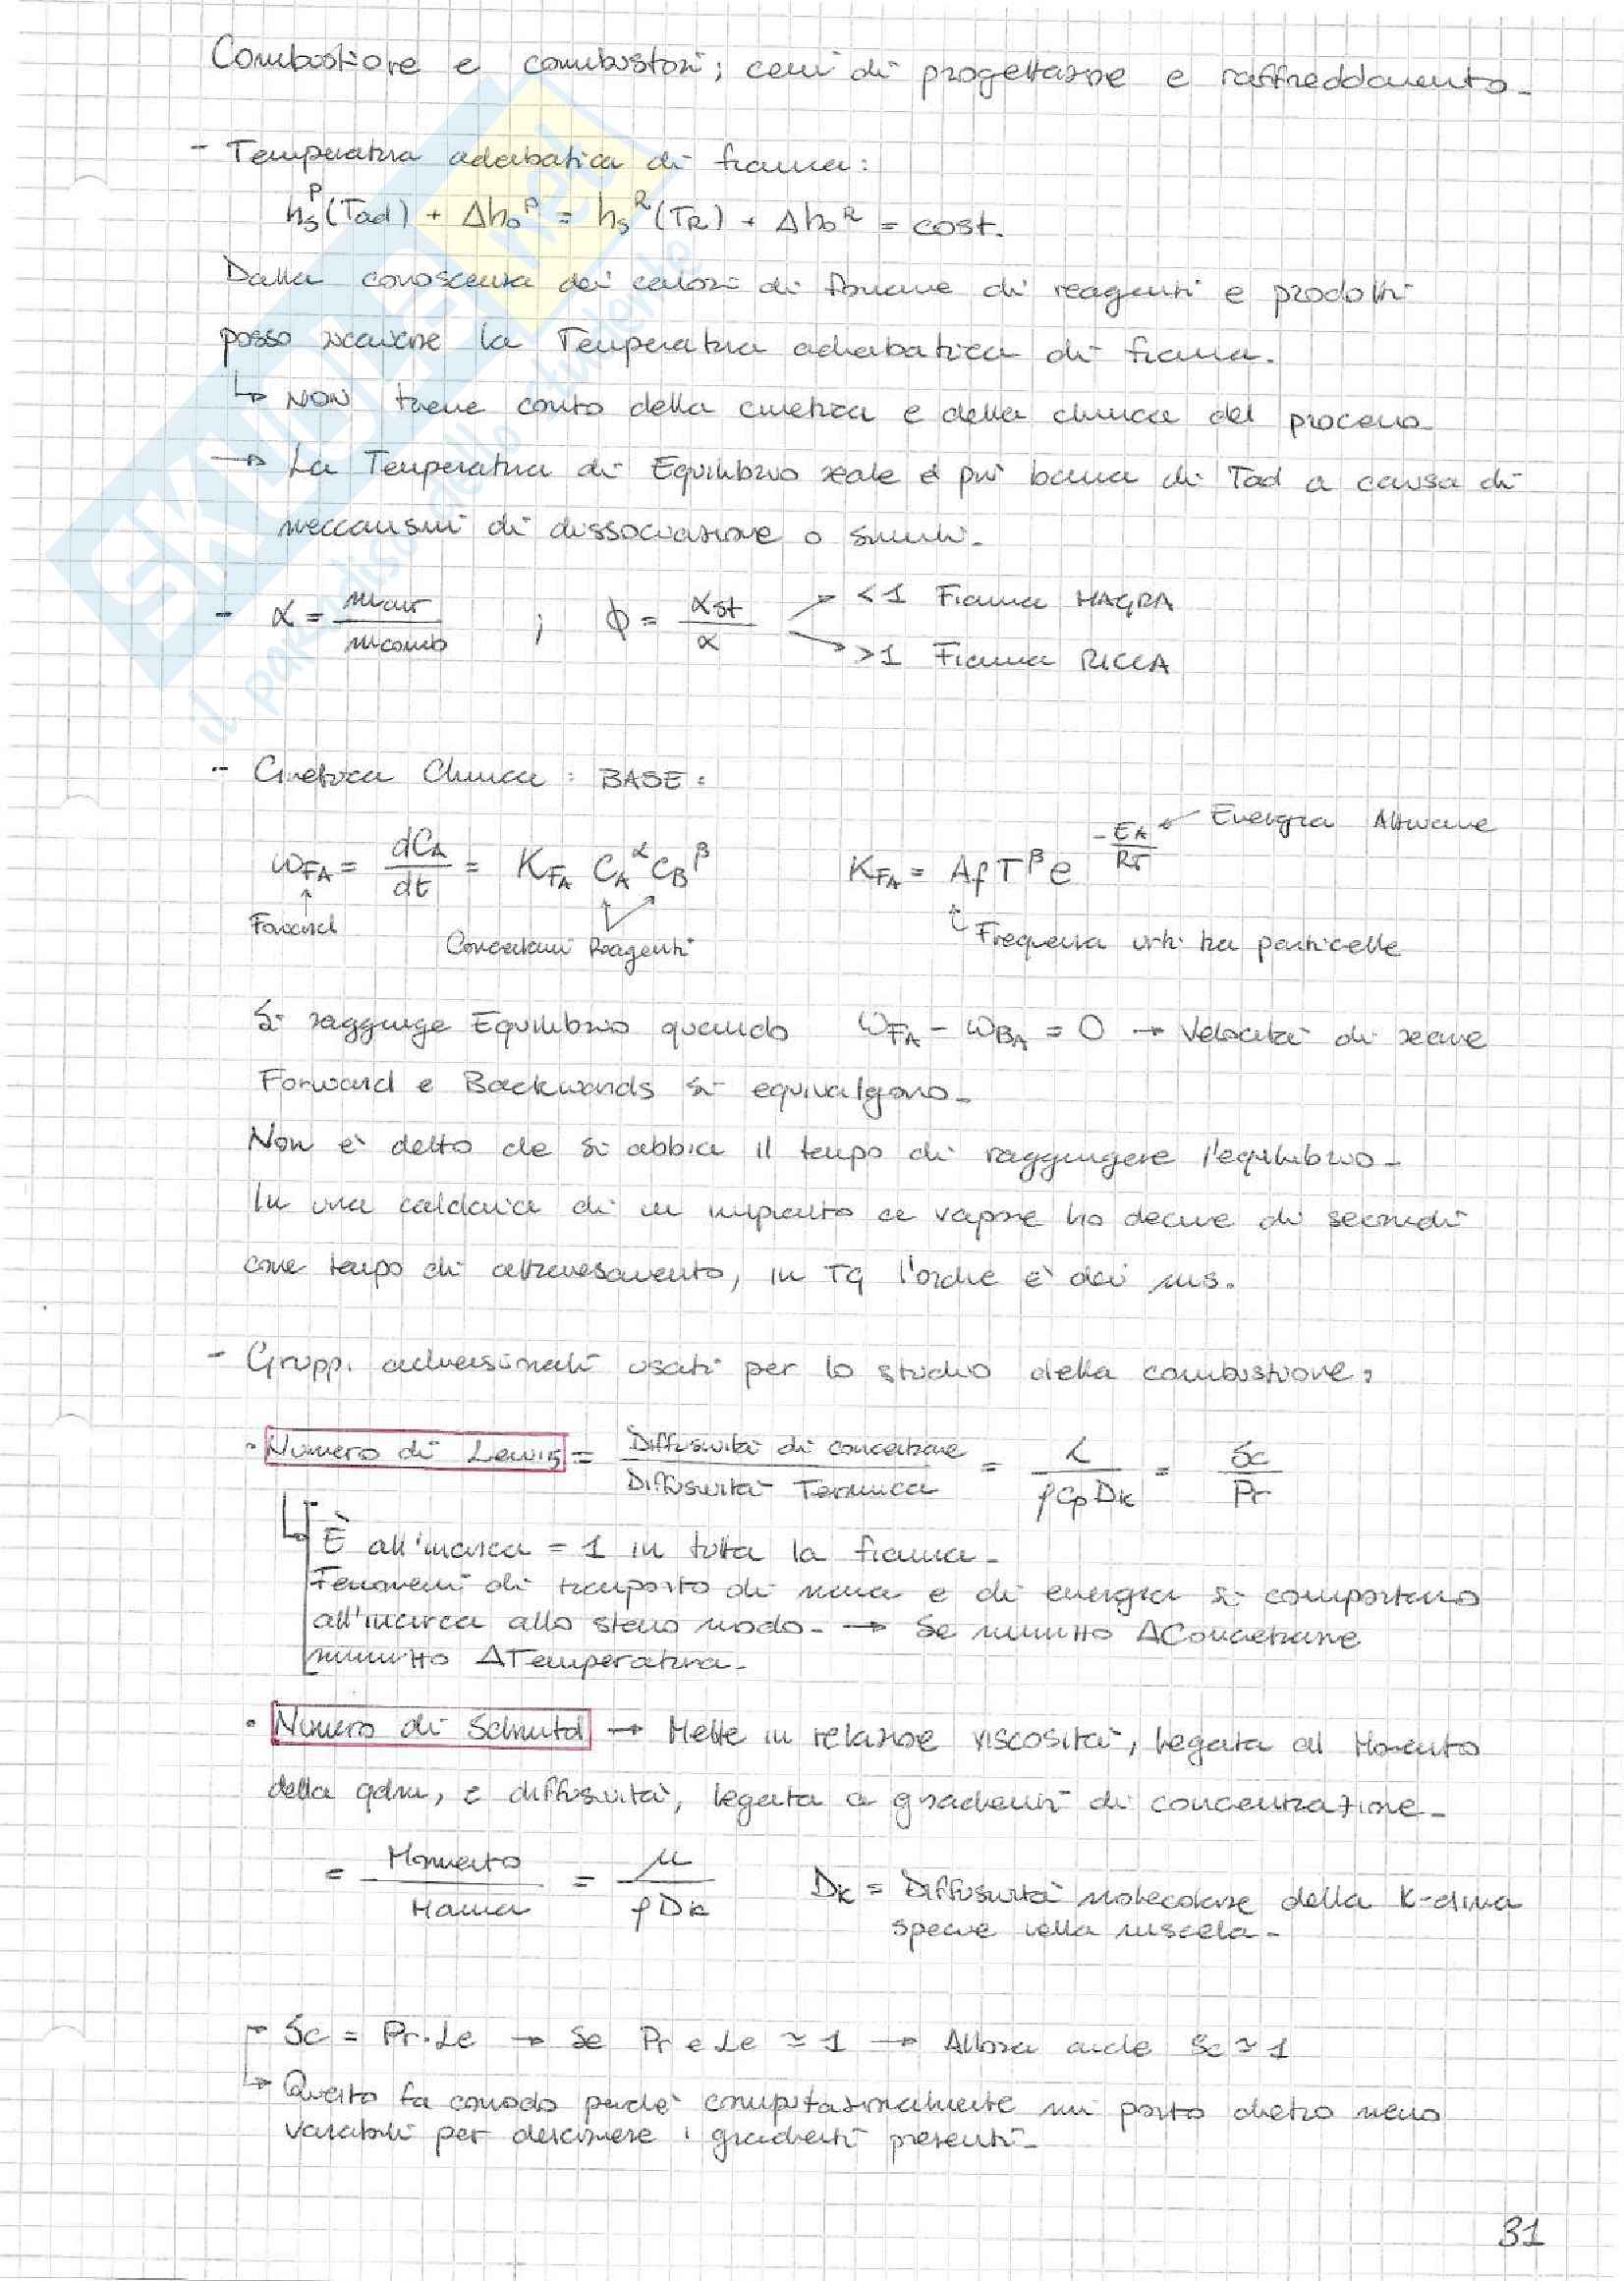 Combustione e combustori; cenni di progettazione e raffreddamento.
- Temperatura adiabatica di fiamma:
hs^P (Tad) + Δh0^P = hs^R (TR) + Δh0^R = cost.
Dalla conoscenza dei calori di formazione di reagenti e prodotti
posso ricavare la Temperatura adiabatica di fiamma.
↳ NON tiene conto della cinetica e della chimica del processo.
→ La Temperatura di Equilibrio reale è più bassa di Tad a causa di
meccanismi di dissociazione o simili.
- α = mair / mcomb ; ϕ = αst / α
< 1 Fiamma MAGRA
> 1 Fiamma RICCA
- Cinetica Chimica : BASE :
ωFA = dCA / dt = KFA CA^α CB^β
KFA = Af T^β e^(-EA/RT) ← Energia Attivazione
Forward
Concentrazioni Reagenti
Frequenza urti tra particelle
Si raggiunge Equilibrio quando ωFA - ωBA = 0 → Velocità di reazione
Forward e Backwards si equivalgono.
Non è detto che si abbia il tempo di raggiungere l'equilibrio.
In una caldaia di un impianto a vapore ho decine di secondi
come tempo di attraversamento, in TG l'ordine è dei ms.
- Gruppi adimensionali usati per lo studio della combustione:
• Numero di Lewis = Diffusività di concentrazione / Diffusività Termica = λ / ρ Cp Dk = Sc / Pr
↳ È all'incirca = 1 in tutta la fiamma.
Fenomeni di trasporto di massa e di energia si comportano
all'incirca allo stesso modo. → Se ammetto ΔConcentrazione
ammetto ΔTemperatura.
• Numero di Schmidt → Mette in relazione viscosità, legata al Momento
della qdm, e diffusività, legata a gradienti di concentrazione.
= Momento / Massa = μ / ρ Dk
Dk = Diffusività molecolare della k-esima
specie nella miscela.
→ Sc = Pr·Le → Se Pr e Le ≃ 1 → Allora anche Sc ≃ 1
↳ Questo fa comodo perchè computazionalmente mi porto dietro meno
variabili per descrivere i gradienti presenti.
31
SKUOLA.net
il paradiso dello studente